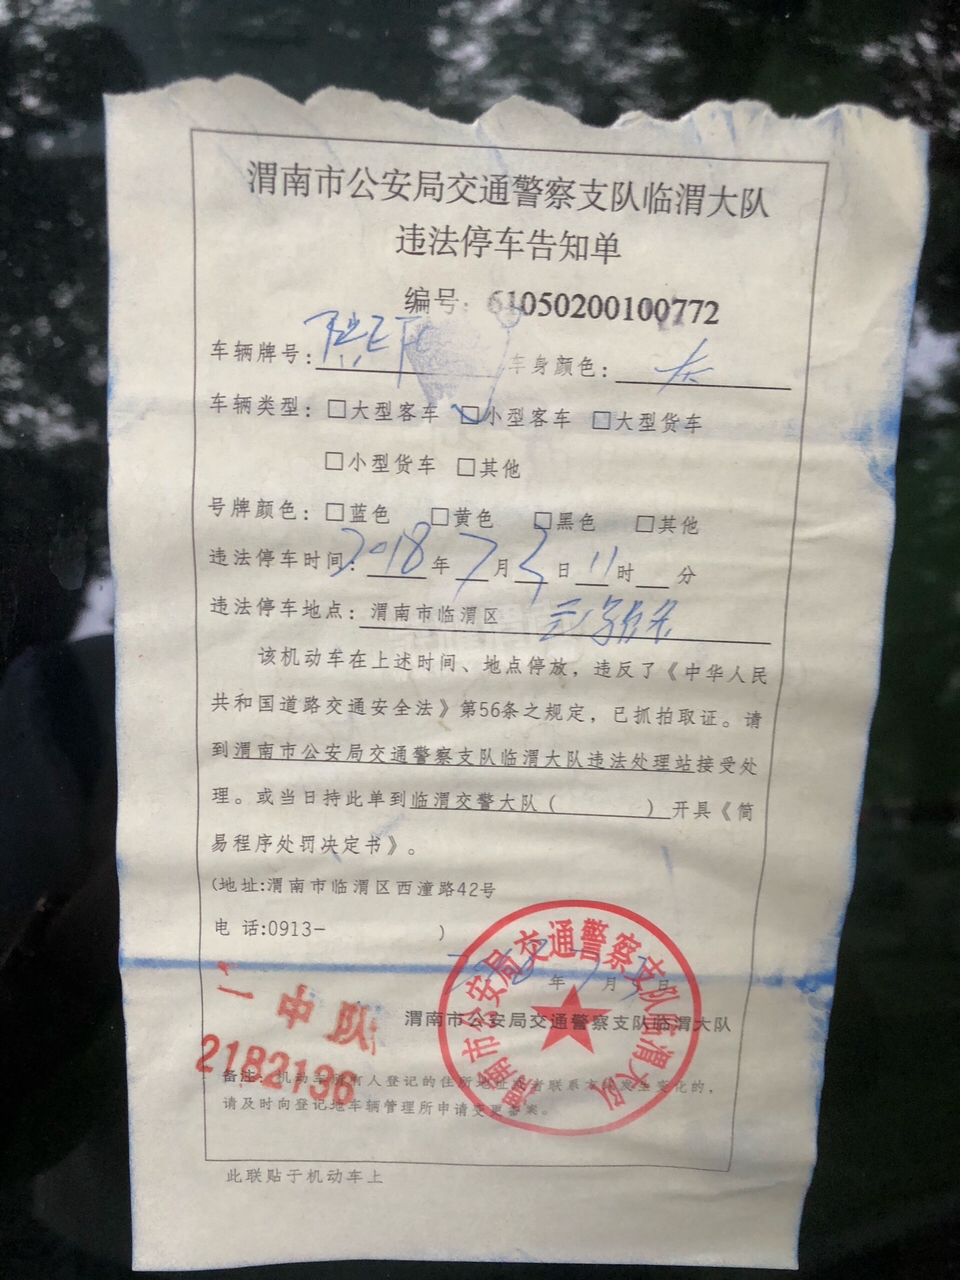 渭南市公安局交通警察支队临渭大队
违法停车告知单
编号：61050200100772
车辆牌号：陕E 车身颜色：灰
车辆类型：□大型客车 □小型客车 □大型货车
□小型货车 □其他
号牌颜色：□蓝色 □黄色 □黑色 □其他
违法停车时间：2018年7月3日11时 分
违法停车地点：渭南市临渭区
该机动车在上述时间、地点停放，违反了《中华人民
共和国道路交通安全法》第56条之规定，已抓拍取证。请
到渭南市公安局交通警察支队临渭大队违法处理站接受处
理。或当日持此单到临渭交警大队（ ）开具《简
易程序处罚决定书》。
(地址:渭南市临渭区西潼路42号
电 话:0913- )
年 月 日
渭南市公安局交通警察支队临渭大队
渭南市公安局交通警察支队临渭大队
一中队
2182136
备注：机动车所有人登记的住所地址或者联系方式发生变化的，
请及时向登记地车辆管理所申请变更备案。
此联贴于机动车上